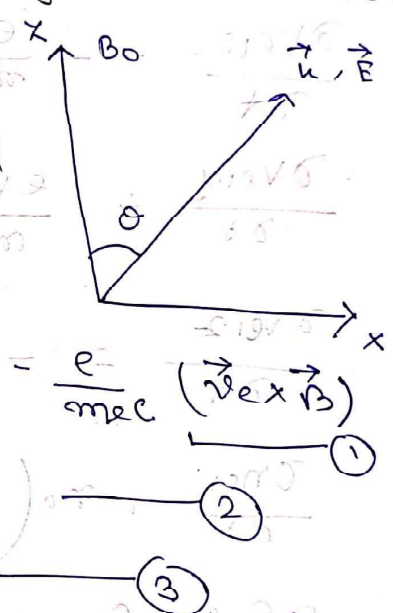 z B₀
→u , →E
θ
x
- e/mec (→ve x →B)
①
②
③